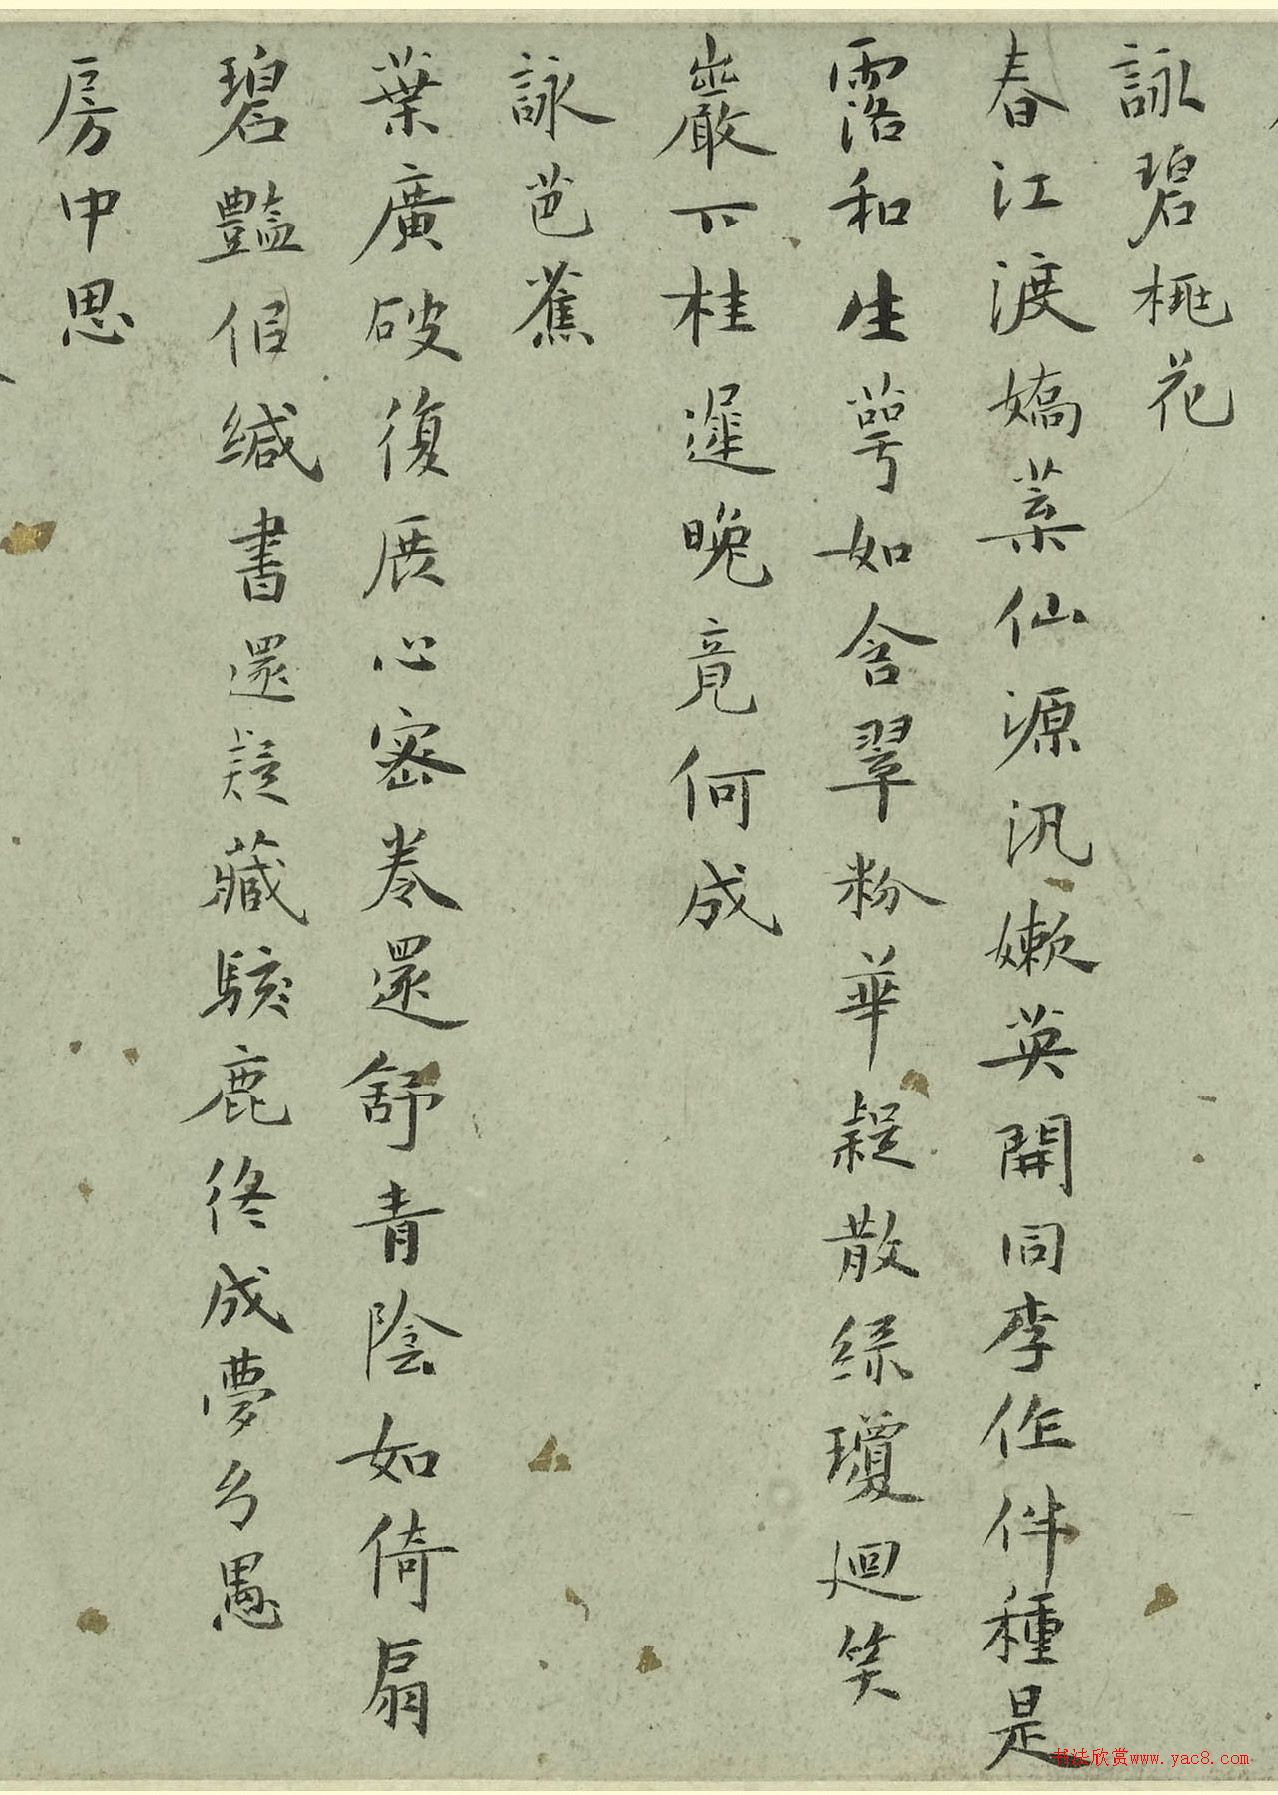 詠碧桃花
春江渡嬌葉仙源汎嫩英開同李作伴種是
露和生萼如含翠粉華疑散綠瓊迴笑
巖下桂遲晚竟何成
詠芭蕉
葉廣破復展心密卷還舒青陰如倚扇
碧豔佀緘書還疑藏駭鹿终成夢幻愚
房中思
书法欣赏www.yac8.com